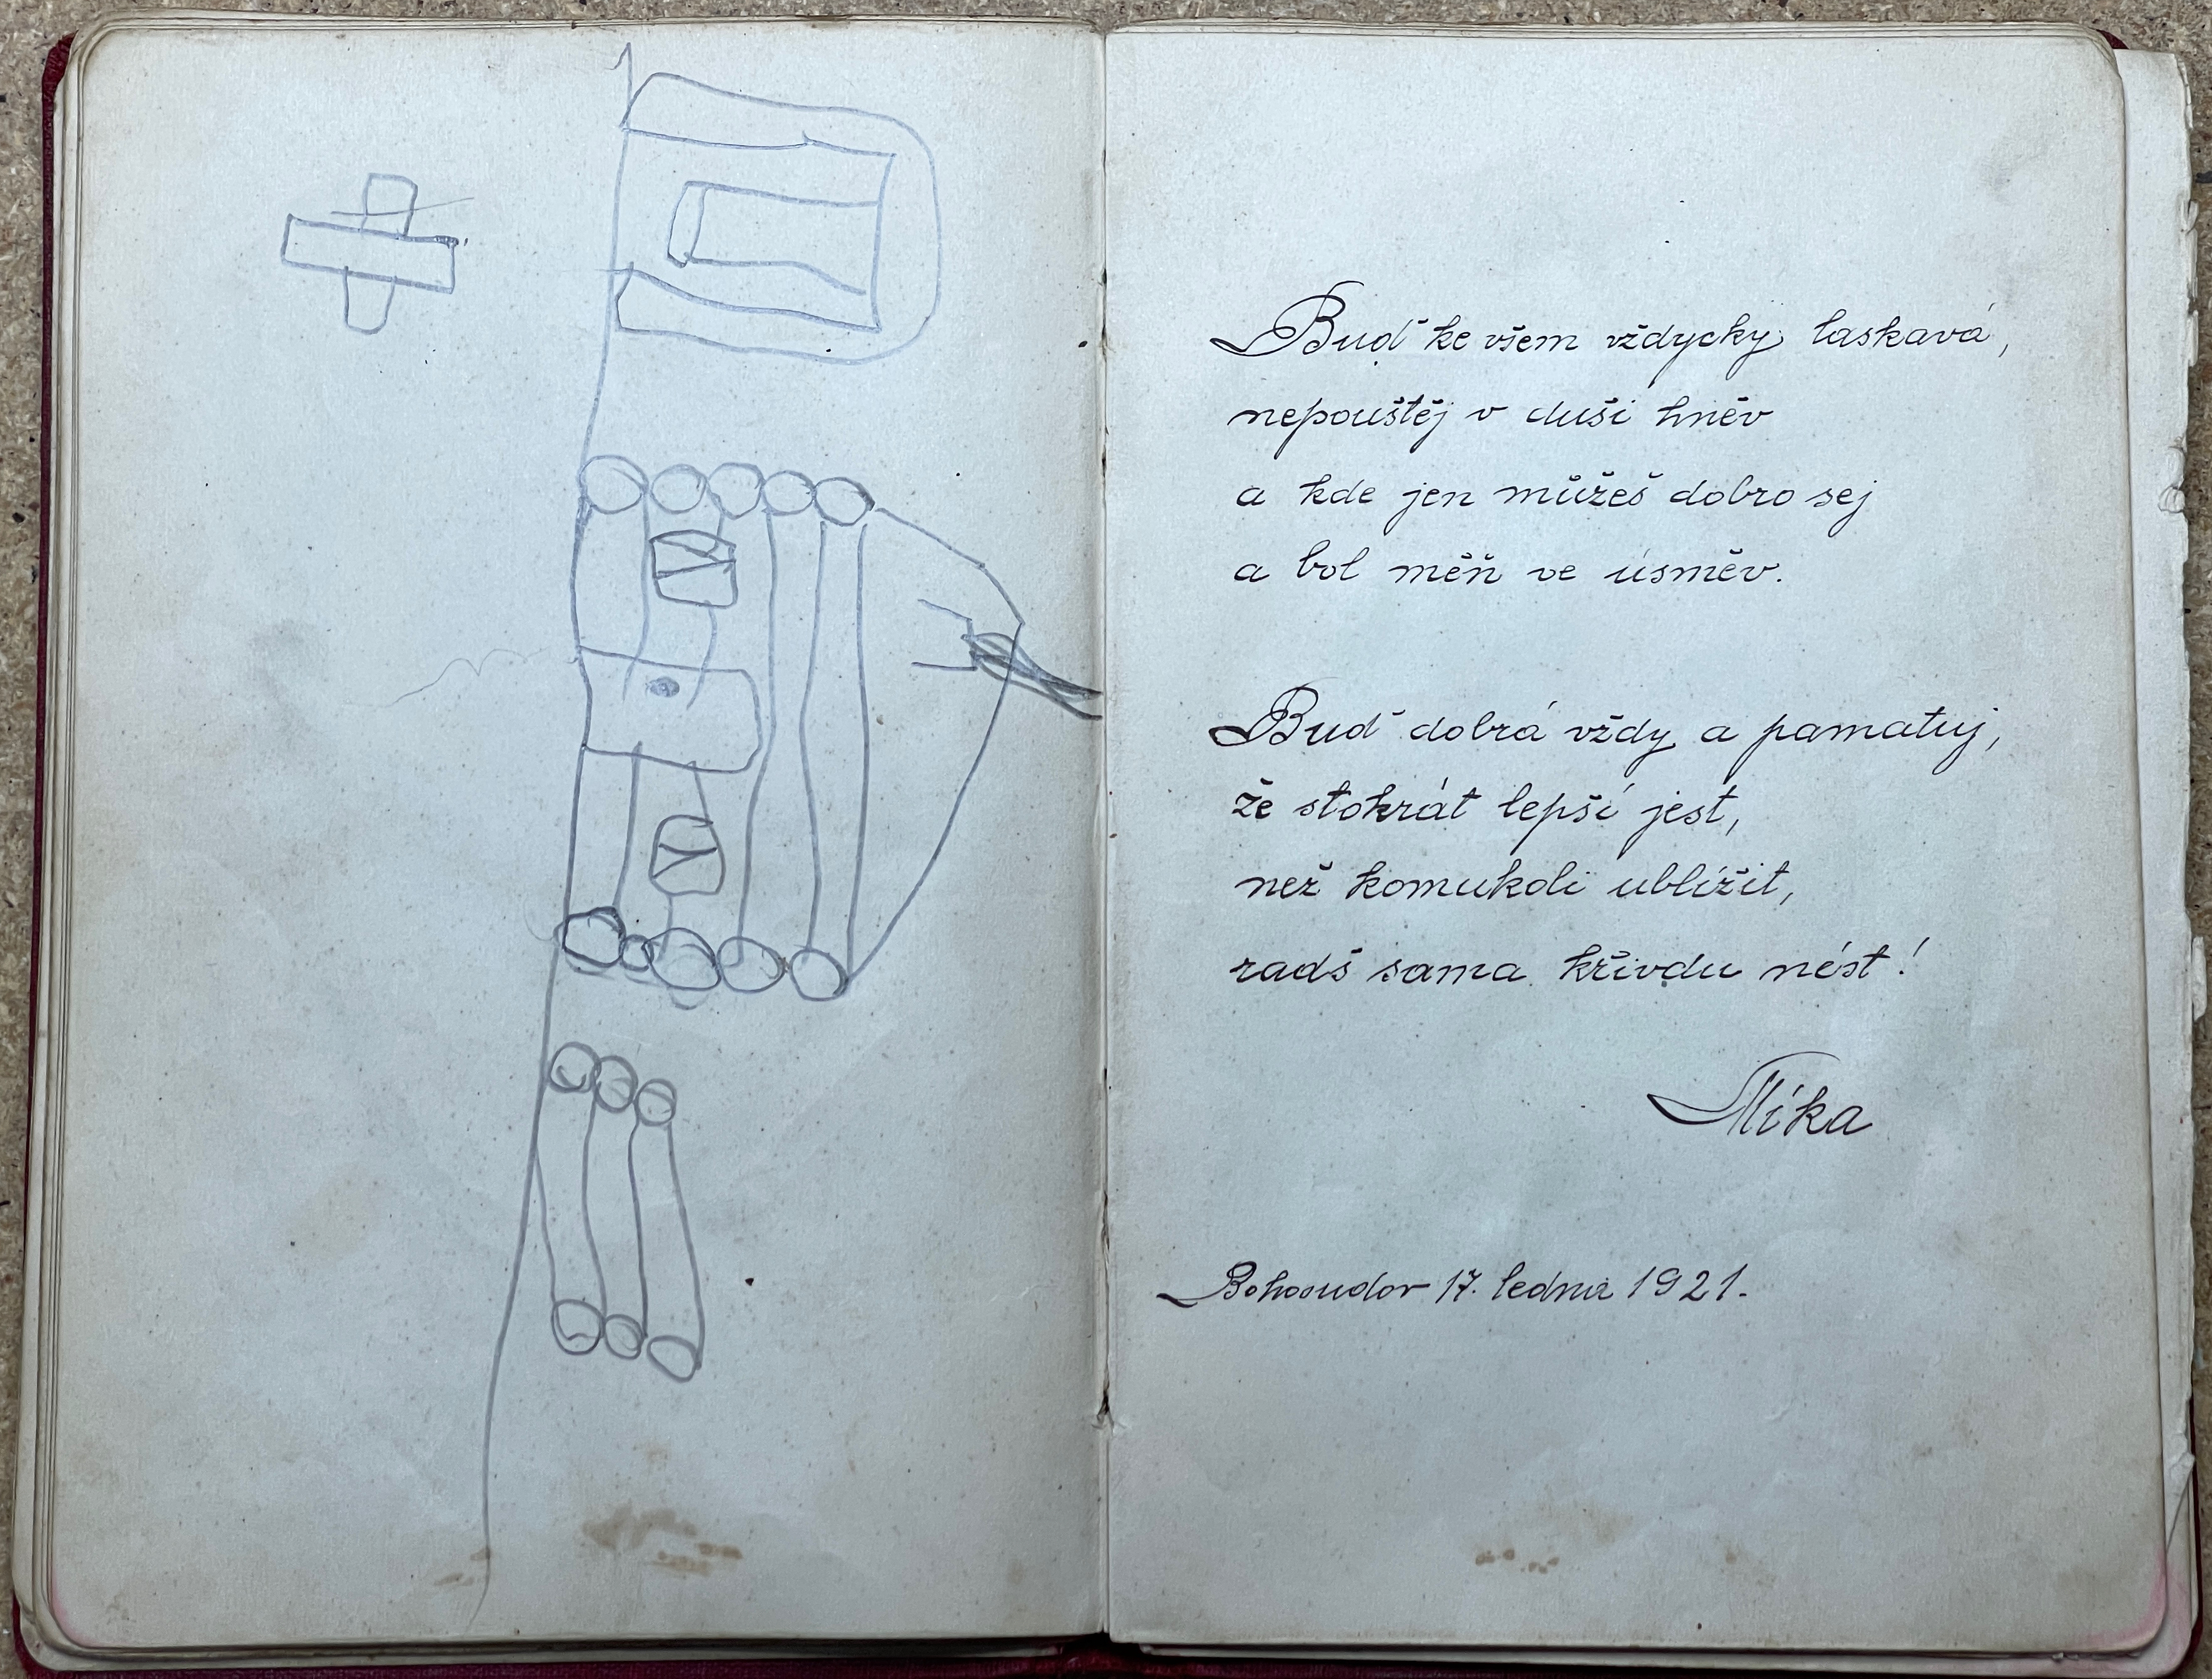 Buď ke všem vždycky laskavá,
nepouštěj v duši hněv
a kde jen můžeš dobro sej
a bol měň ve úsměv.
Buď dobrá vždy a pamatuj,
že stokrát lepší jest,
než komukoli ublížit,
radš sama křivdu nést!
Míka
Bohosudov 17. ledna 1921.